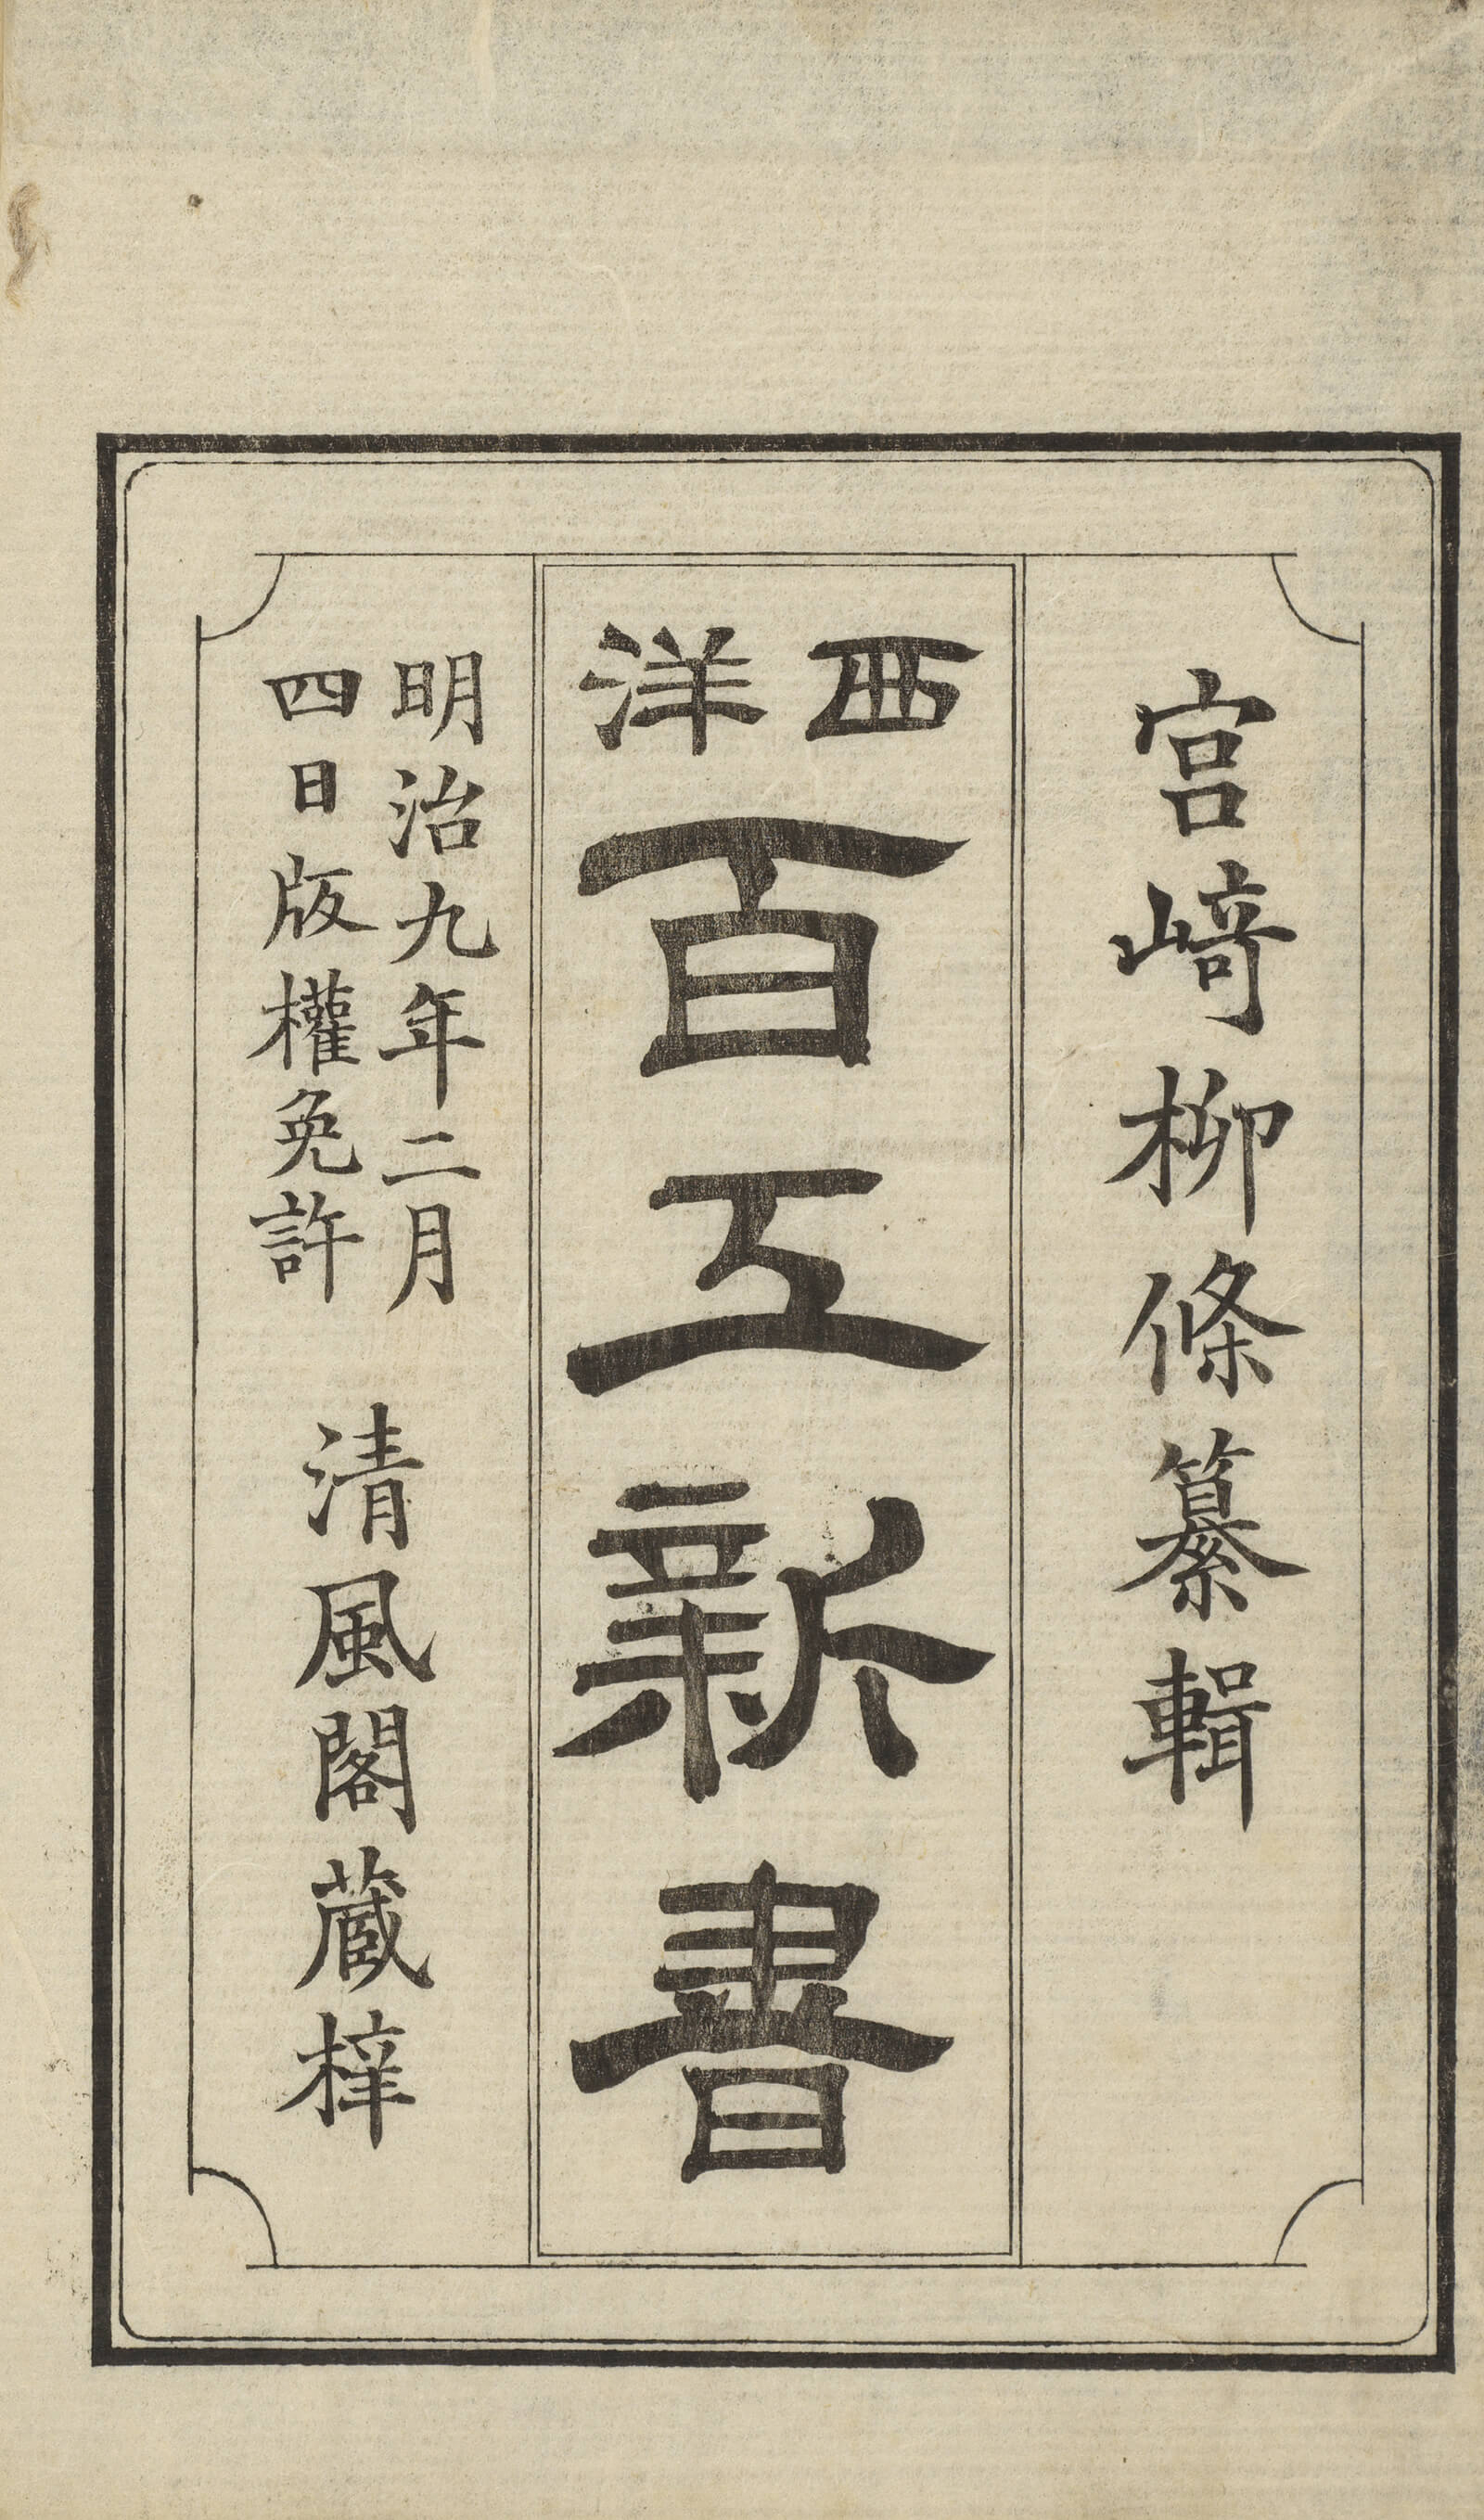 宮﨑柳條纂輯
西洋
百工新書
明治九年二月
四日版權免許
清風閣蔵梓